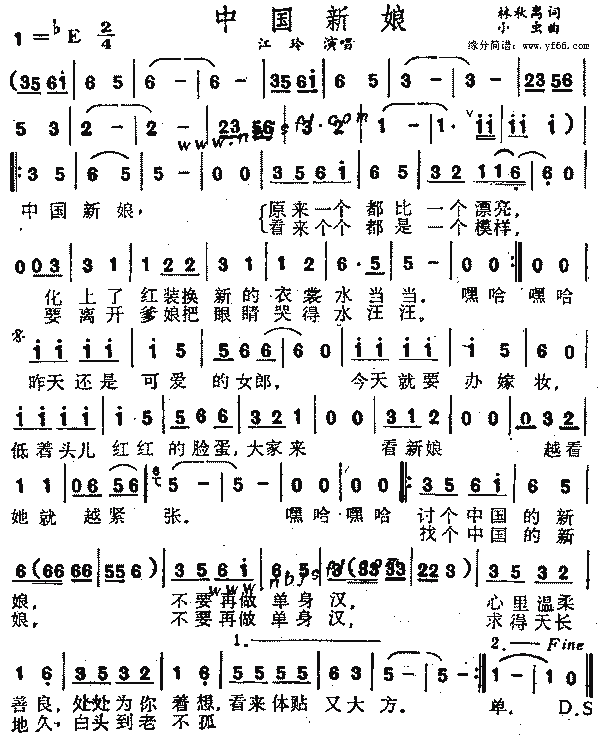 中国新娘
1=♭E 2/4
江玲 演唱
林秋离 词
小虫 曲
缘分简谱: www.yf66.com
(35 61 | 6 5 | 6 – | 6 – | 35 61 | 6 5 | 3 – | 3 – | 23 56
5 3 | 2 – | 2 – | 23 56 | 3·2 | 1 – | 1· 11 | 11 1)
3 5 | 6 5 | 5 – | 0 0 | 3561 | 6 5 | 32 116 | 6 0
中国新娘, 原来一个 都比 一个漂亮,
看来个个 都是 一个模样,
0 03 | 3 1 | 1 22 | 3 1 | 1 22 | 6·5 | 5 – | 0 0 | 0 0
化 上了 红装换 新的 衣裳水当当. 嘿哈 嘿哈
要 离开 爹娘把 眼睛 哭得水汪汪,
1 1 1 1 | 1 5 | 566 | 6 0 | 1 1 1 1 | 6 5 | 3 – | 3 0
昨天还是 可爱 的女郎, 今天就要 办嫁妆,
1 1 1 1 | 1 5 | 5 66 | 321 | 0 0 | 312 | 0 0 | 0 32
低着头儿 红红 的脸蛋,大家来 看新娘 越看
1 1 | 06 56 | 5 – | 5 – | 0 0 | 0 0 | 3561 | 6 5
她就 越紧 张. 嘿哈 嘿哈 讨个中国的新
找个中国的新
6(66 66 | 556) | 3561 | 6 5 | 3(33 33 | 223) | 3532
娘, 不要再做 单身汉, 心里温柔
娘, 不要再做 单身汉, 求得天长
1. 2. Fine
1 6 | 3532 | 1 6 | 5555 | 6 5 | 5 – | 5 – | 1 – | 1 0
善良,处处为你 着想,看来体贴 又大方. 单. D.S
地久,白头到老 不孤